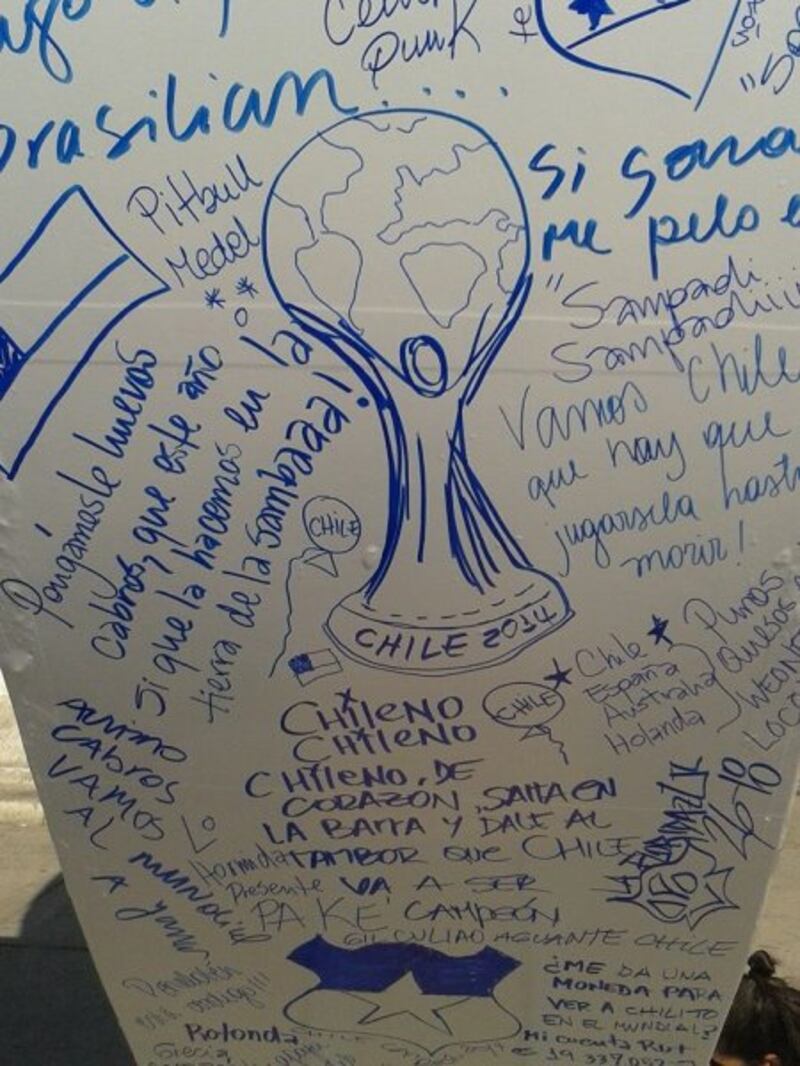 Punk
brasilian....
Pitbull
Medel
si gana
me pelo e
"Sampadi...
Sampadiiii
Vamos Chile
que hay que
jugarsela hasta
morir!
Pongámosle huevos
cabros, que este año
si que la hacemos en la
tierra de la sambaaa!
CHILE
CHILE 2014
CHILE
Chile
España
Australia
Holanda
Pumas
Quesos
WEONES
LOCO
CHILENO
CHILENO
CHILENO, DE
CORAZÓN, SALTA EN
LA BARRA Y DALE AL
TAMBOR QUE CHILE
VA A SER
CAMPEÓN
AL
CABROS
VAMOS
MUNDIAL
A ganar
Hormida
Presente
PA KE
CULIAO AGUANTE CHILE
¿ME DA UNA
MONEDA PARA
VER A CHILITO
EN EL MUNDIAL?
Mi cuenta Rut
es 19.339.052-7
Rolonda
Grecia
CHILE